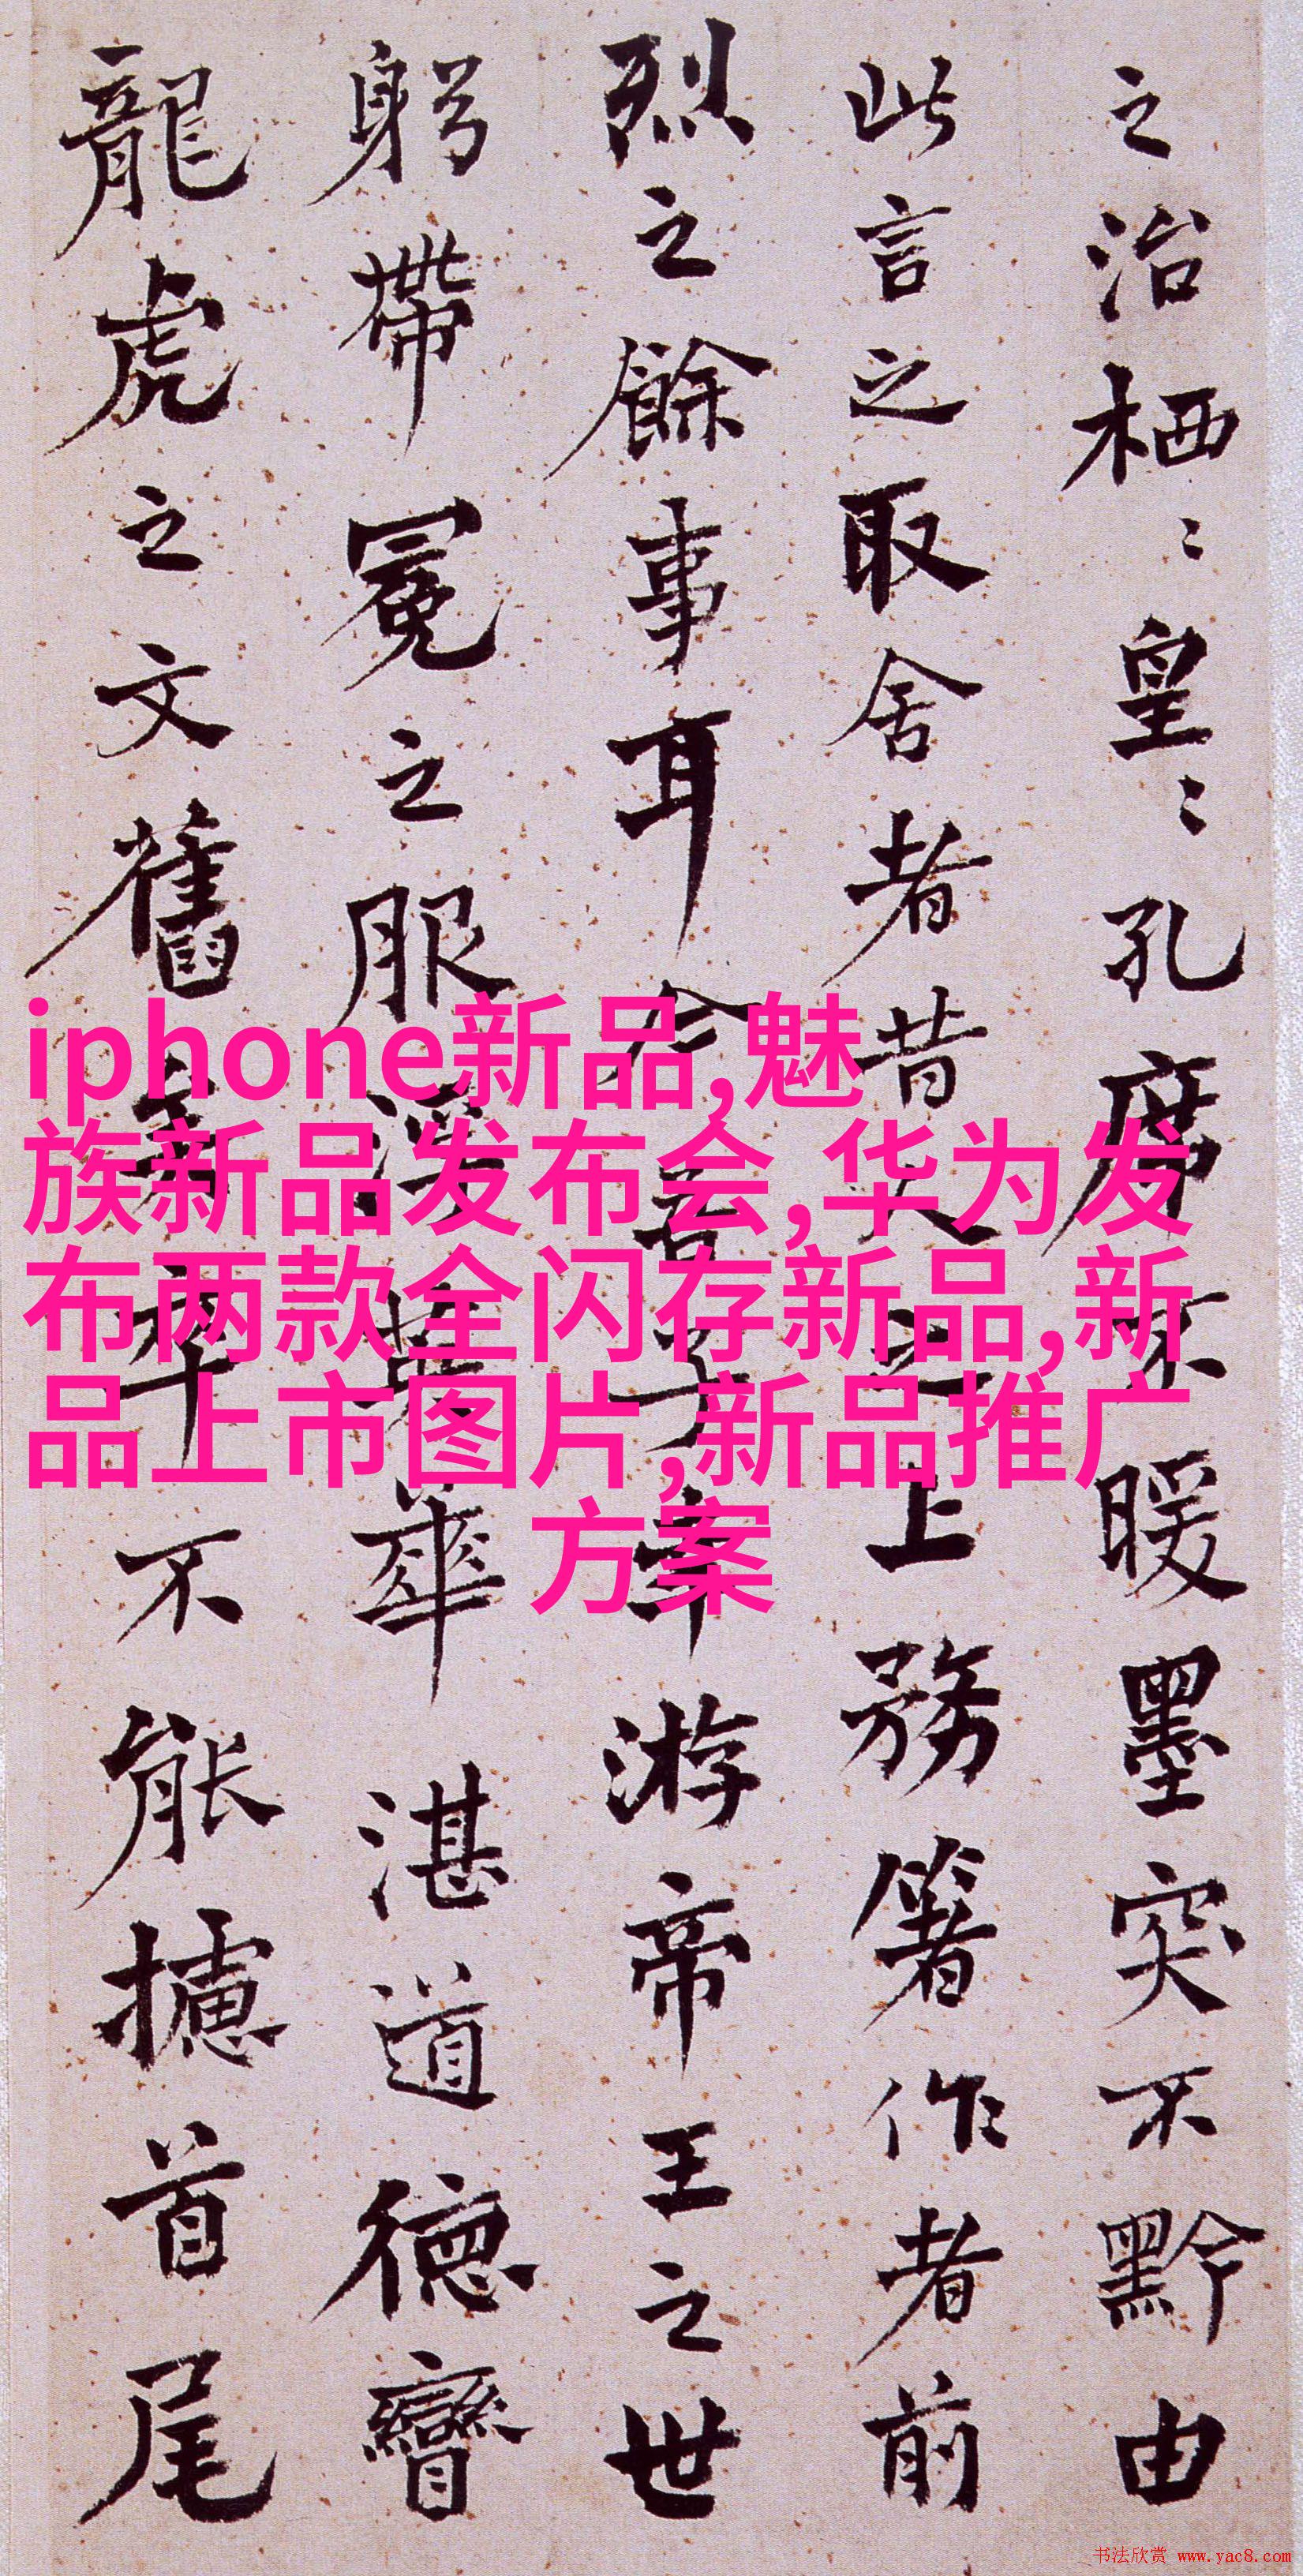 之治栖〻皇〻孔席不暖墨突不黔由
此言之取舍者昔人之上務箸作者前
烈之餘事耳今吾子幸游帝王之世
躬帶冕之服浮英華湛道德矕
龍虎之文舊矣卒不能攄首尾
iphone新品,魅
族新品发布会,华为发
布两款全闪存新品,新
品上市图片,新品推广
方案
书法欣赏 www.yac8.com